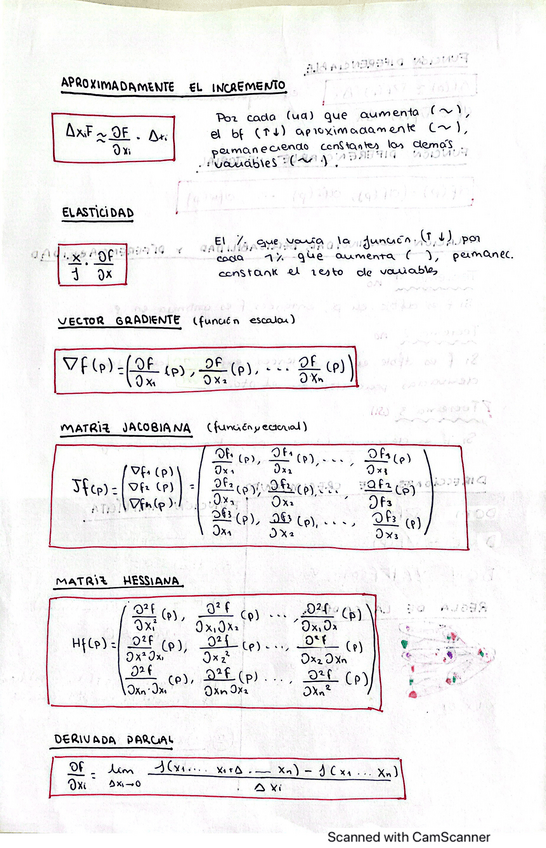 APROXIMADAMENTE EL INCREMENTO
ΔxᵢF ≈ ∂F/∂xᵢ · Δxᵢ
Por cada (ud) que aumenta (~),
el bf (↑↓) aproximadamente (~),
permaneciendo constantes las demás
variables (~).
ELASTICIDAD
x/f · ∂f/∂x
El % que varía la función (↑ ↓) por
cada 1% que aumenta ( ), permanec.
constank el resto de variables
VECTOR GRADIENTE (función escalar)
∇f(p)=(∂F/∂x₁ (p), ∂F/∂x₂ (p), ... ∂F/∂xₙ (p))
MATRIZ JACOBIANA (función vectorial)
Jf(p)=(∇f₁(p) ∇f₂(p) ∇fn(p)) = (∂f₁/∂x₁ (p), ∂f₁/∂x₂ (p), ..., ∂f₁/∂x₃ (p)
∂f₂/∂x₁ (p), ∂f₂/∂x₂ (p), ..., ∂f₂/∂f₃ (p)
∂f₃/∂x₁ (p), ∂f₃/∂x₂ (p), ... ∂f₃/∂x₃ (p))
MATRIZ HESSIANA
Hf(p)=(∂²f/∂x₁² (p), ∂²f/∂x₁∂x₂ (p) ..., ∂²f/∂x₁∂x (p)
∂²f/∂x²∂x₁ (p), ∂²f/∂x₂² (p) ..., ∂²f/∂x₂∂xn (p)
∂²f/∂xn·∂x₁ (p), ∂²f/∂xn∂x₂ (p) ..., ∂²f/∂xn² (p))
DERIVADA PARCIAL
∂F/∂xᵢ = lim Δxᵢ→0 f(x₁.... xᵢ+Δ ... xn) - f(x₁ ... xn) / Δxᵢ
Scanned with CamScanner